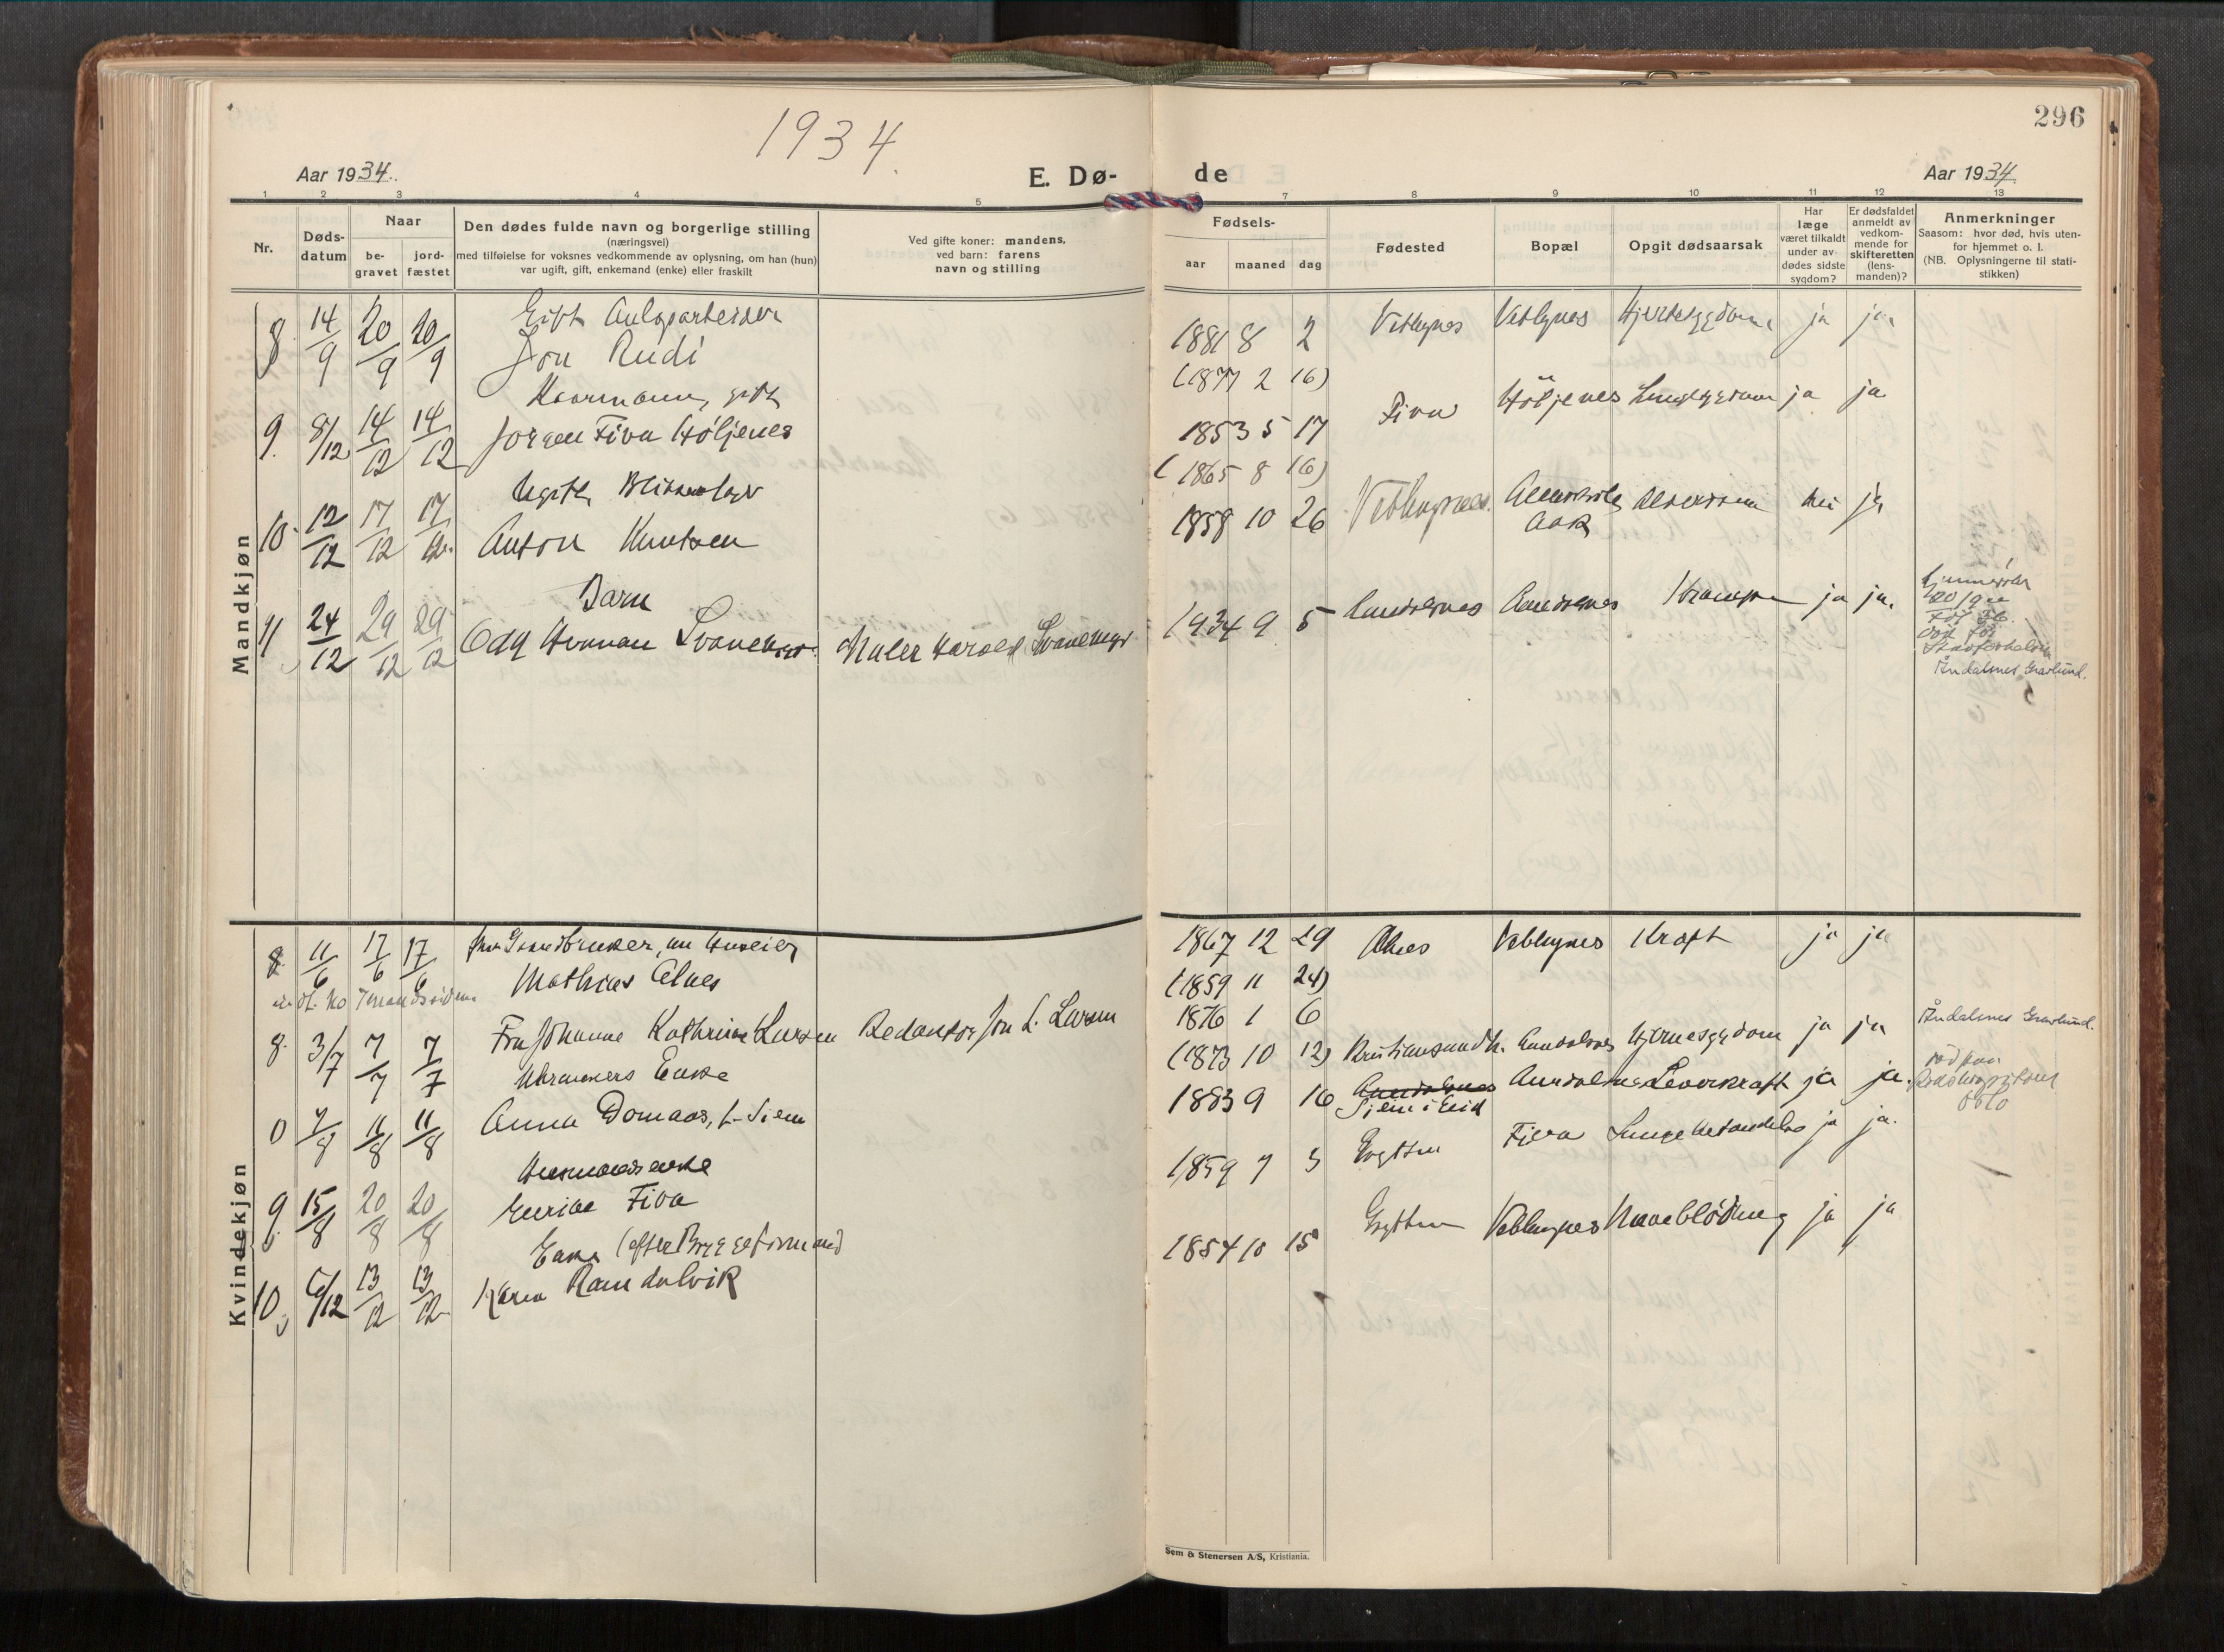 1934.
296
Aar 1934.
E. Dø-
de
Aar 1934
1 2 3 4 5 6 7 8 9 10 11 12 13
Nr.
Døds-
datum
Naar
be-
gravet
jord-
fæstet
Den dødes fulde navn og borgerlige stilling
(næringsvei)
med tilføielse for voksnes vedkommende av oplysning, om han (hun)
var ugift, gift, enkemand (enke) eller fraskilt
Ved gifte koner: mandens,
ved barn: farens
navn og stilling
Fødsels-
aar maaned dag
Fødested
Bopæl
Opgit dødsaarsak
Har
læge
været tilkaldt
under av-
dødes sidste
sygdom?
Er dødsfaldet
anmeldt av
vedkom-
mende for
skifteretten
(lens-
manden)?
Anmerkninger
Saasom: hvor død, hvis uten-
for hjemmet o. l.
(NB. Oplysningerne til stati-
stikken)
Mandkjøn
Gift Anlegsarbeider
8 14/9 20/9 20/9 Jon Rudi 1881 8 2 Veblugnes Veblugnes Hjertesygdom ja ja
(1877 2 16)
Kaarmann, gift
9. 8/12 14/12 14/12 Jørgen Fiva Höljenes 1853 5 17 Fiva Höljenes Lungesygdom ja ja
(1865 8 16)
Ugift,
10. 12/12 17/12 17/12 Anton Knutsen 1858 10 26 Veblugnes. Aak nei ja
Barn
11 24/12 29/12 29/12 Odd Svanemyr Maler Harald Svanemyr 1934 9 5 Aandalsnes Aandalsnes Krampe ja ja.
Åndalsnes Gravlund.
Kvindekjøn
8 11/6 17/6 17/6 Gaardbruker, nu Huseier
Mathias Alnes 1867 12 29 Alnes Veblugnes Kræft ja ja
(1859 11 24)
8. 3/7 7/7 7/7 Fru Johanne Kathrine Larsen Redaktør Jon L. Larsen 1876 1 6
(1873 10 12) Kristiansund N. Aandalsnes Hjernesygdom ja ja Åndalsnes Gravlund.
Enke
0 7/8 11/8 11/8 Anna Domaas, f. Siem 1883 9 16 Aandalsnes Siem i Eid Aandalsnes Leverkræft ja ja.
Oslo
Husmandsenke
9. 15/8 20/8 20/8 Fiva 1859 7 3 Grytten Fiva ja ja.
Enke (efter Bryggeformand)
10. 6/12 13/12 13/12 Karen Ramdalvik 1854 10 15 Grytten Veblugnes ja ja
Sem & Stenersen A/S, Kristiania.